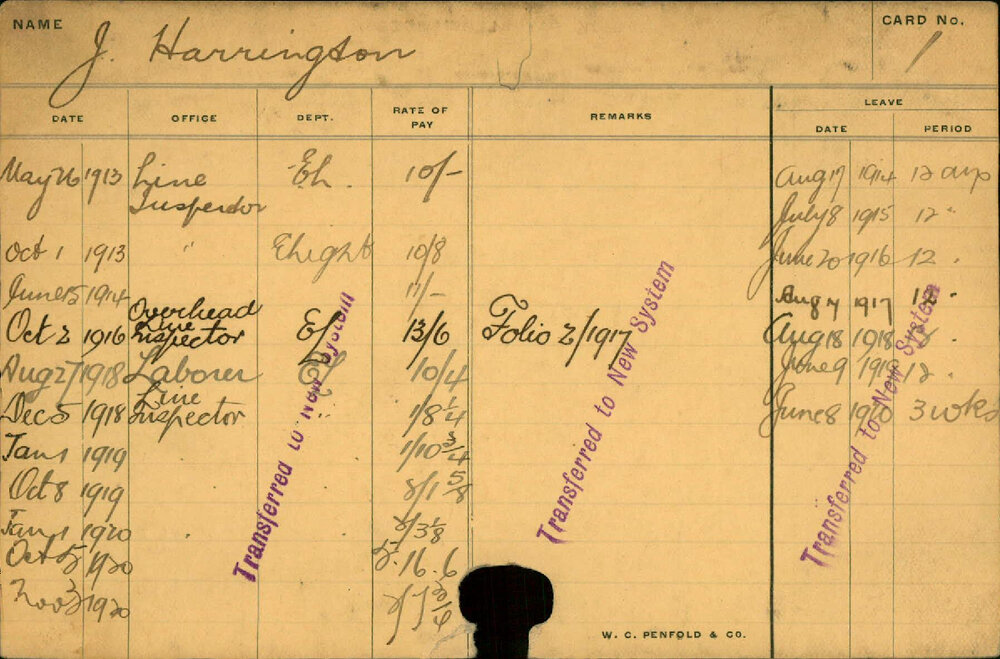 NAME J. Harrington CARD No. 1
LEAVE
DATE OFFICE DEPT. RATE OF PAY REMARKS DATE PERIOD
May 26 1913 Line Inspector El. 10/- Aug 17 1914 12 days
July 8 1915 12 "
Oct 1 1913 " Elight 10/8 June 20 1916 12 "
June 15 1914 11/- Aug 7 1917 12 "
Oct 2 1916 Overhead Line Inspector El 13/6 Folio 2/1917 Aug 18 1918
Aug 27 1918 Laborer 10/4 June 9 1919 12 "
Dec 5 1918 Line Inspector 1/8 1/4 June 8 1920 3 wks
Jan 1 1919 1/10 3/4
Oct 8 1919 2/1 5/8
Jan 1 1920 2/3 1/8
Oct 1920 5.16.6
Nov 3 1920
Transferred to New System
Transferred to New System
Transferred to New System
W. C. PENFOLD & CO.